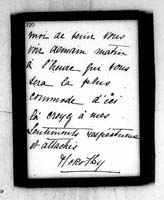 moi de venir vous
voir demain matin
à l'heure qui vous
sera la plus
commode d'ici
là croyez à mes
sentiments respectueux
et attachés